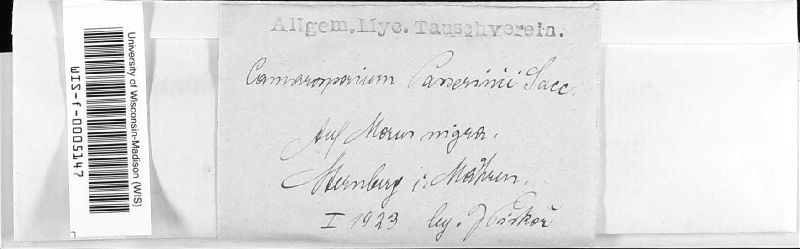 Allgem. Myc. Tauschverein.
Camarosporium Passerinii Sacc.
Auf Morus nigra.
Sternberg i. Mähren.
I 1923 leg. J. Piskoř
University of Wisconsin-Madison (WIS)
WIS-f-0005147